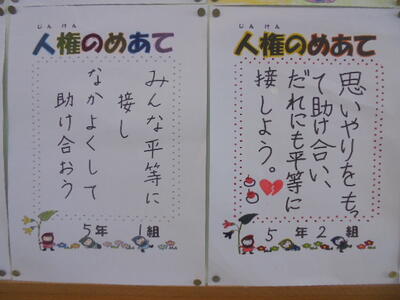 じんけん
人権のめあて
みんな平等に
接し
なかよくして
助け合おう
5年 1組
じんけん
人権のめあて
思いやりをもっ
て助け合い、
だれにも平等に
接しよう。
5年2組